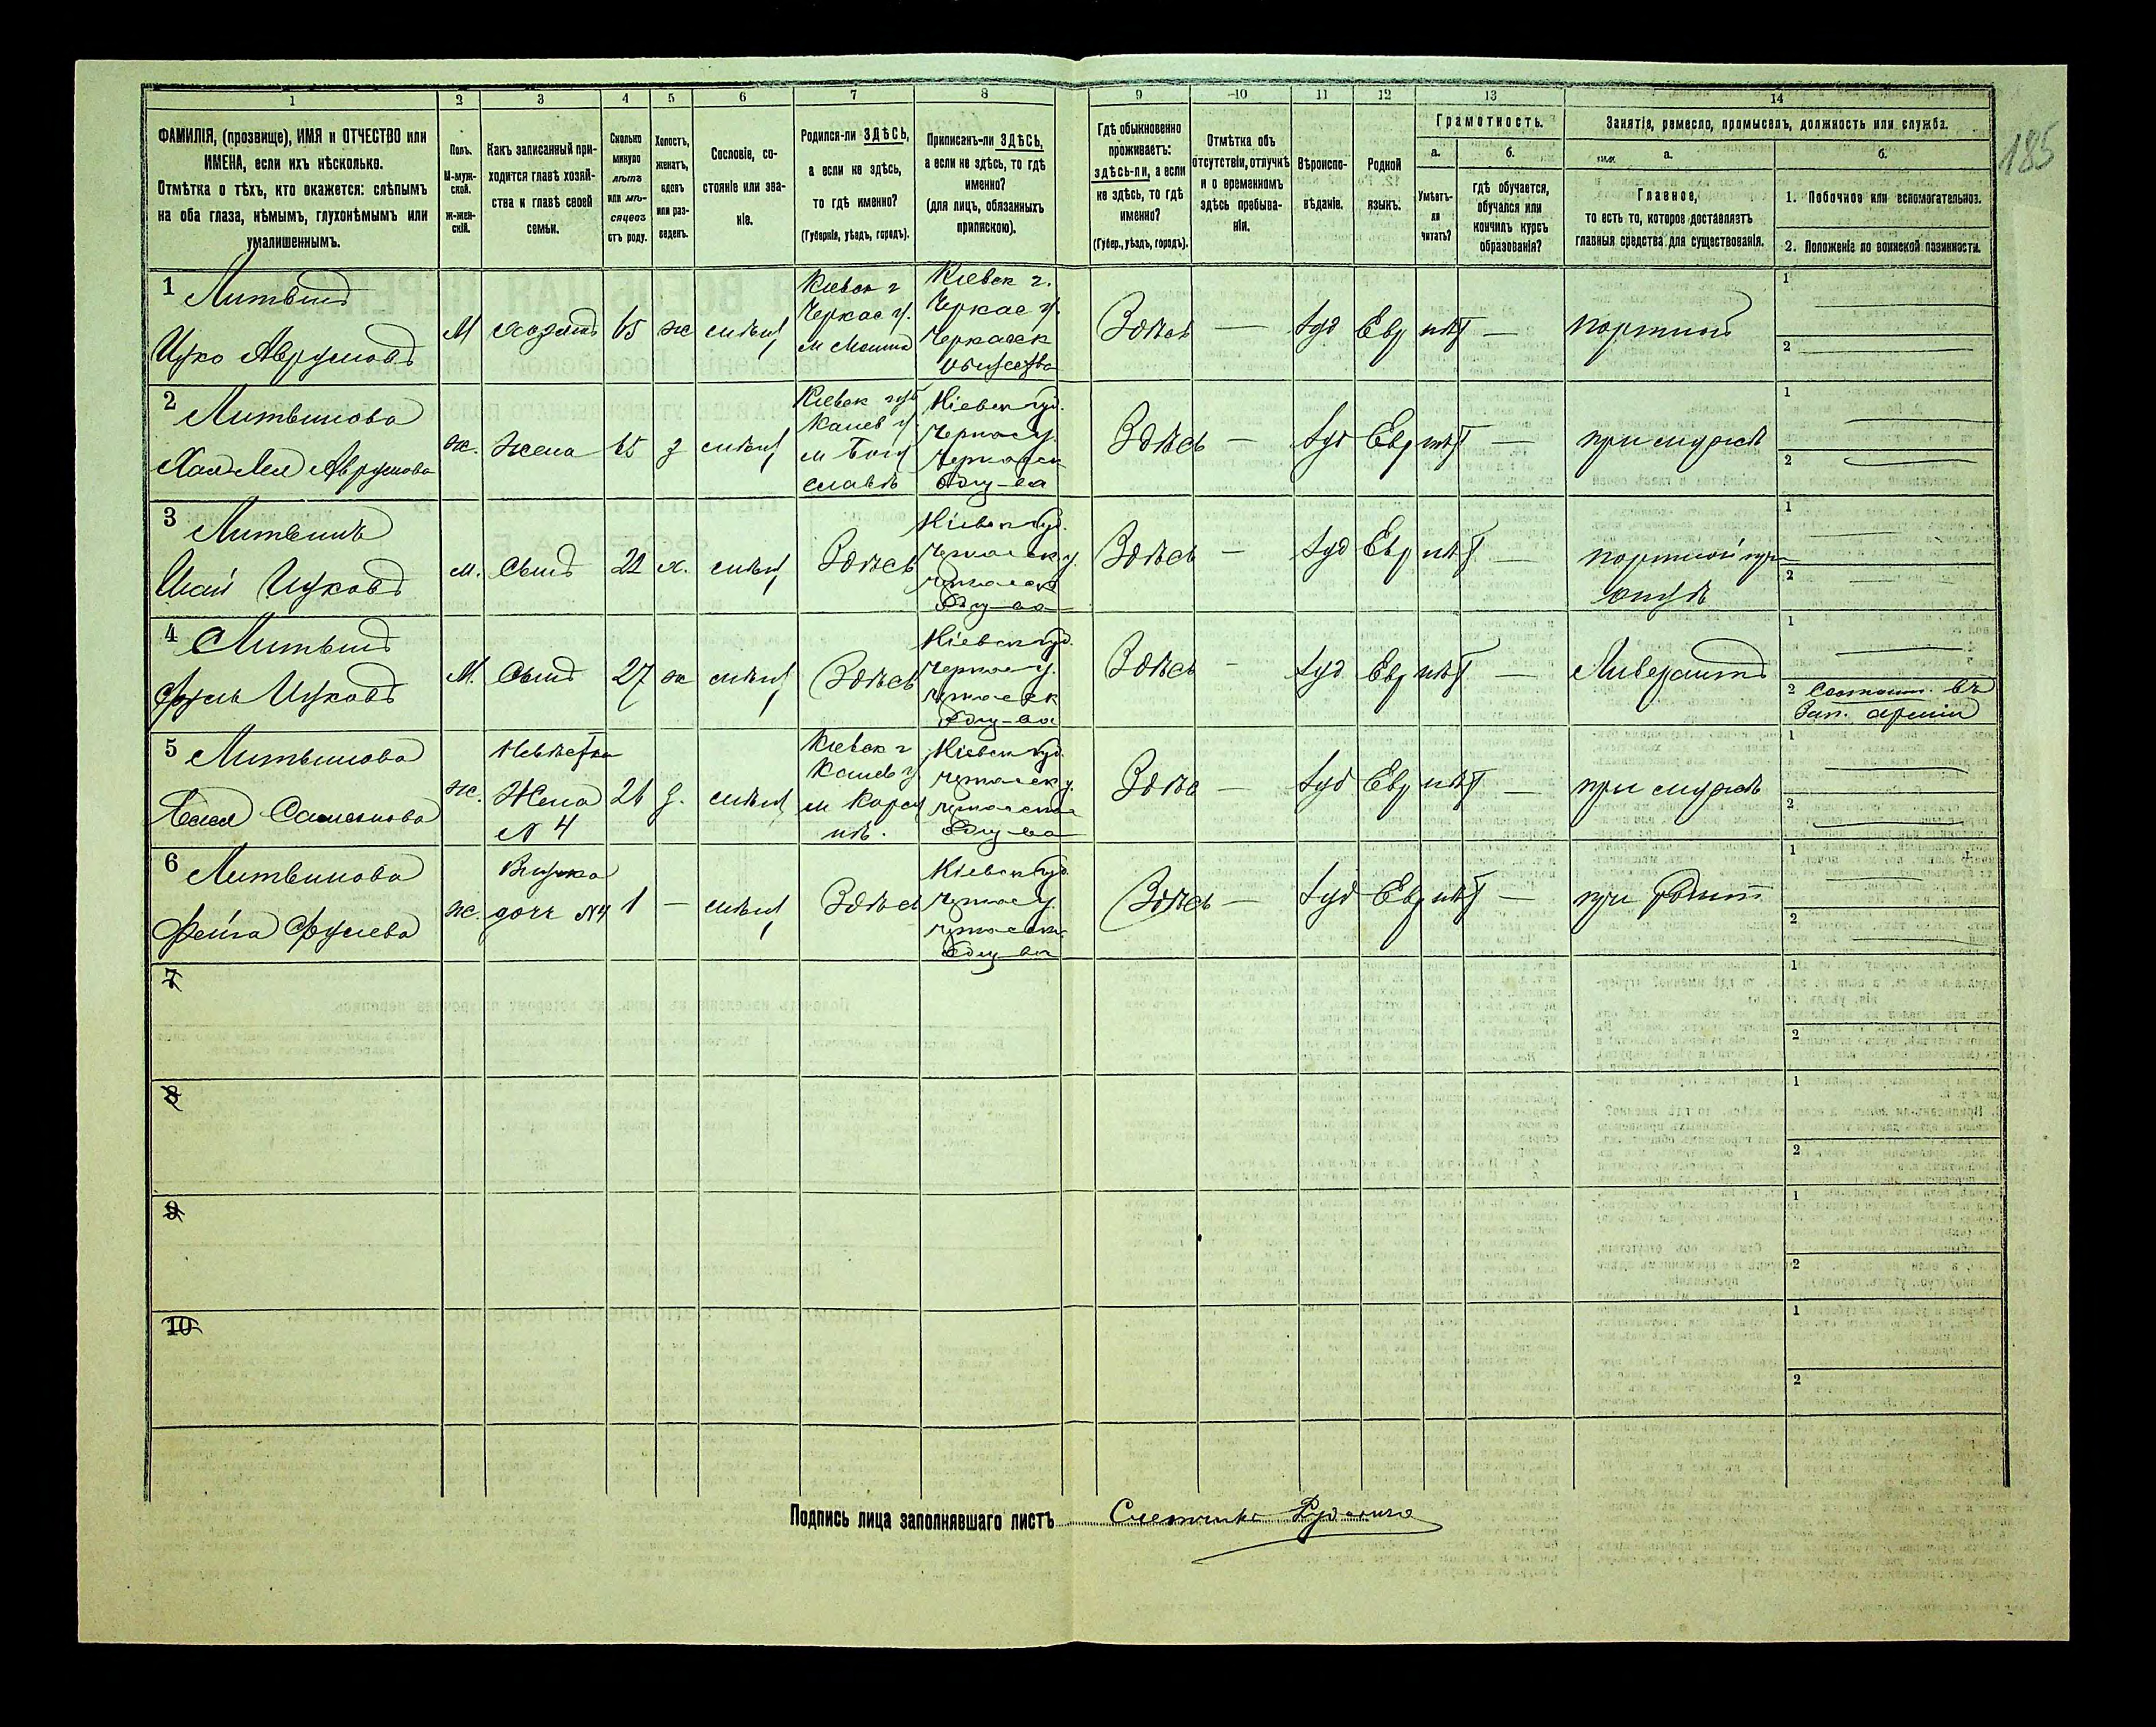 185
1 2 3 4 5 6 7 8 9 10 11 12 13 14
ФАМИЛІЯ, (прозвище), ИМЯ и ОТЧЕСТВО или
ИМЕНА, если ихъ нѣсколько.
Отмѣтка о тѣхъ, кто окажется: слѣпымъ
на оба глаза, нѣмымъ, глухонѣмымъ или
умалишеннымъ.
Полъ.
М-муж-
ской.
ж-жен-
скій.
Какъ записанный при-
ходится главѣ хозяй-
ства и главѣ своей
семьи.
Сколько
минуло
лѣтъ
или мѣ-
сяцевъ
отъ роду.
Холостъ,
женатъ,
вдовъ
или раз-
веденъ.
Сословіе, со-
стояніе или зва-
ніе.
Родился-ли ЗДѢСЬ,
а если не здѣсь,
то гдѣ именно?
(Губернія, уѣздъ, городъ).
Приписанъ-ли ЗДѢСЬ,
а если не здѣсь, то гдѣ
именно?
(для лицъ, обязанныхъ
припискою).
Гдѣ обыкновенно
проживаетъ:
здѣсь-ли, а если
не здѣсь, то гдѣ
именно?
(Губер., уѣздъ, городъ).
Отмѣтка объ
отсутствіи, отлучкѣ
и о временномъ
здѣсь пребыва-
ніи.
Вѣроиспо-
вѣданіе.
Родной
языкъ.
Грамотность.
а.
Умѣетъ-
ли
читать?
б.
гдѣ обучается,
обучался или
кончилъ курсъ
образованія?
Занятіе, ремесло, промыселъ, должность или служба.
а.
Главное,
то есть то, которое доставляетъ
главныя средства для существованія.
б.
1. Побочное или вспомогательное.
2. Положеніе по воинской повинности.
1 Литвинъ
Ицко Аврумовъ
М хозяинъ 65 ж
Кіевск г
Черкас у.
м Мошна
Кіевск г.
Черкас у.
Черкасск
общества
Здѣсь — Іуд Евр нѣт — портной
1
2
2 Литвинова
Аврумова
ж. Жена 65 з
Кіевск губ
Канев у
м Богу
славѣ
Кіевск губ.
Черкас у.
Черкасск
Общ-ва
Здѣсь — Іуд Евр нѣт — при мужѣ
1
2
3 Литвинъ
Ицковъ
м. Сынъ 22 х. Здѣсь
Кіевск губ.
Черкасск у.
Черкасск
Общ-ва
Здѣсь — Іуд Евр нѣт — портной при
отцѣ
1
2
4 Литвинъ
Ицковъ
М. Сынъ 27 ж Здѣсь
Кіевск губ.
Черкас у.
Черкасск
Общ-ва
Здѣсь — Іуд Евр нѣт —
1
2 Состоит. въ
Зап. арміи
5 Литвинова
ж. Невѣстка
Жена
№ 4
26 з.
Кіевск г
Канев у
м Корсу
нѣ.
Кіевск губ.
Черкасск у.
Черкасск
Общ-ва
— Іуд Евр нѣт — при мужѣ
1
2
6 Литвинова
Фейга
ж. Внучка
дочь №4 1 — Здѣсь
Кіевск губ.
Черкас у.
Черкасск
Общ-ва
Здѣсь — Іуд Евр нѣт — при Родит
1
2
7
1
2
8
1
2
9
1
2
10
1
2
Подпись лица заполнявшаго листъ